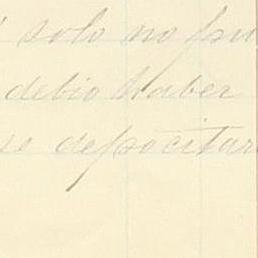 solo no pu
debio haber
se depocitar